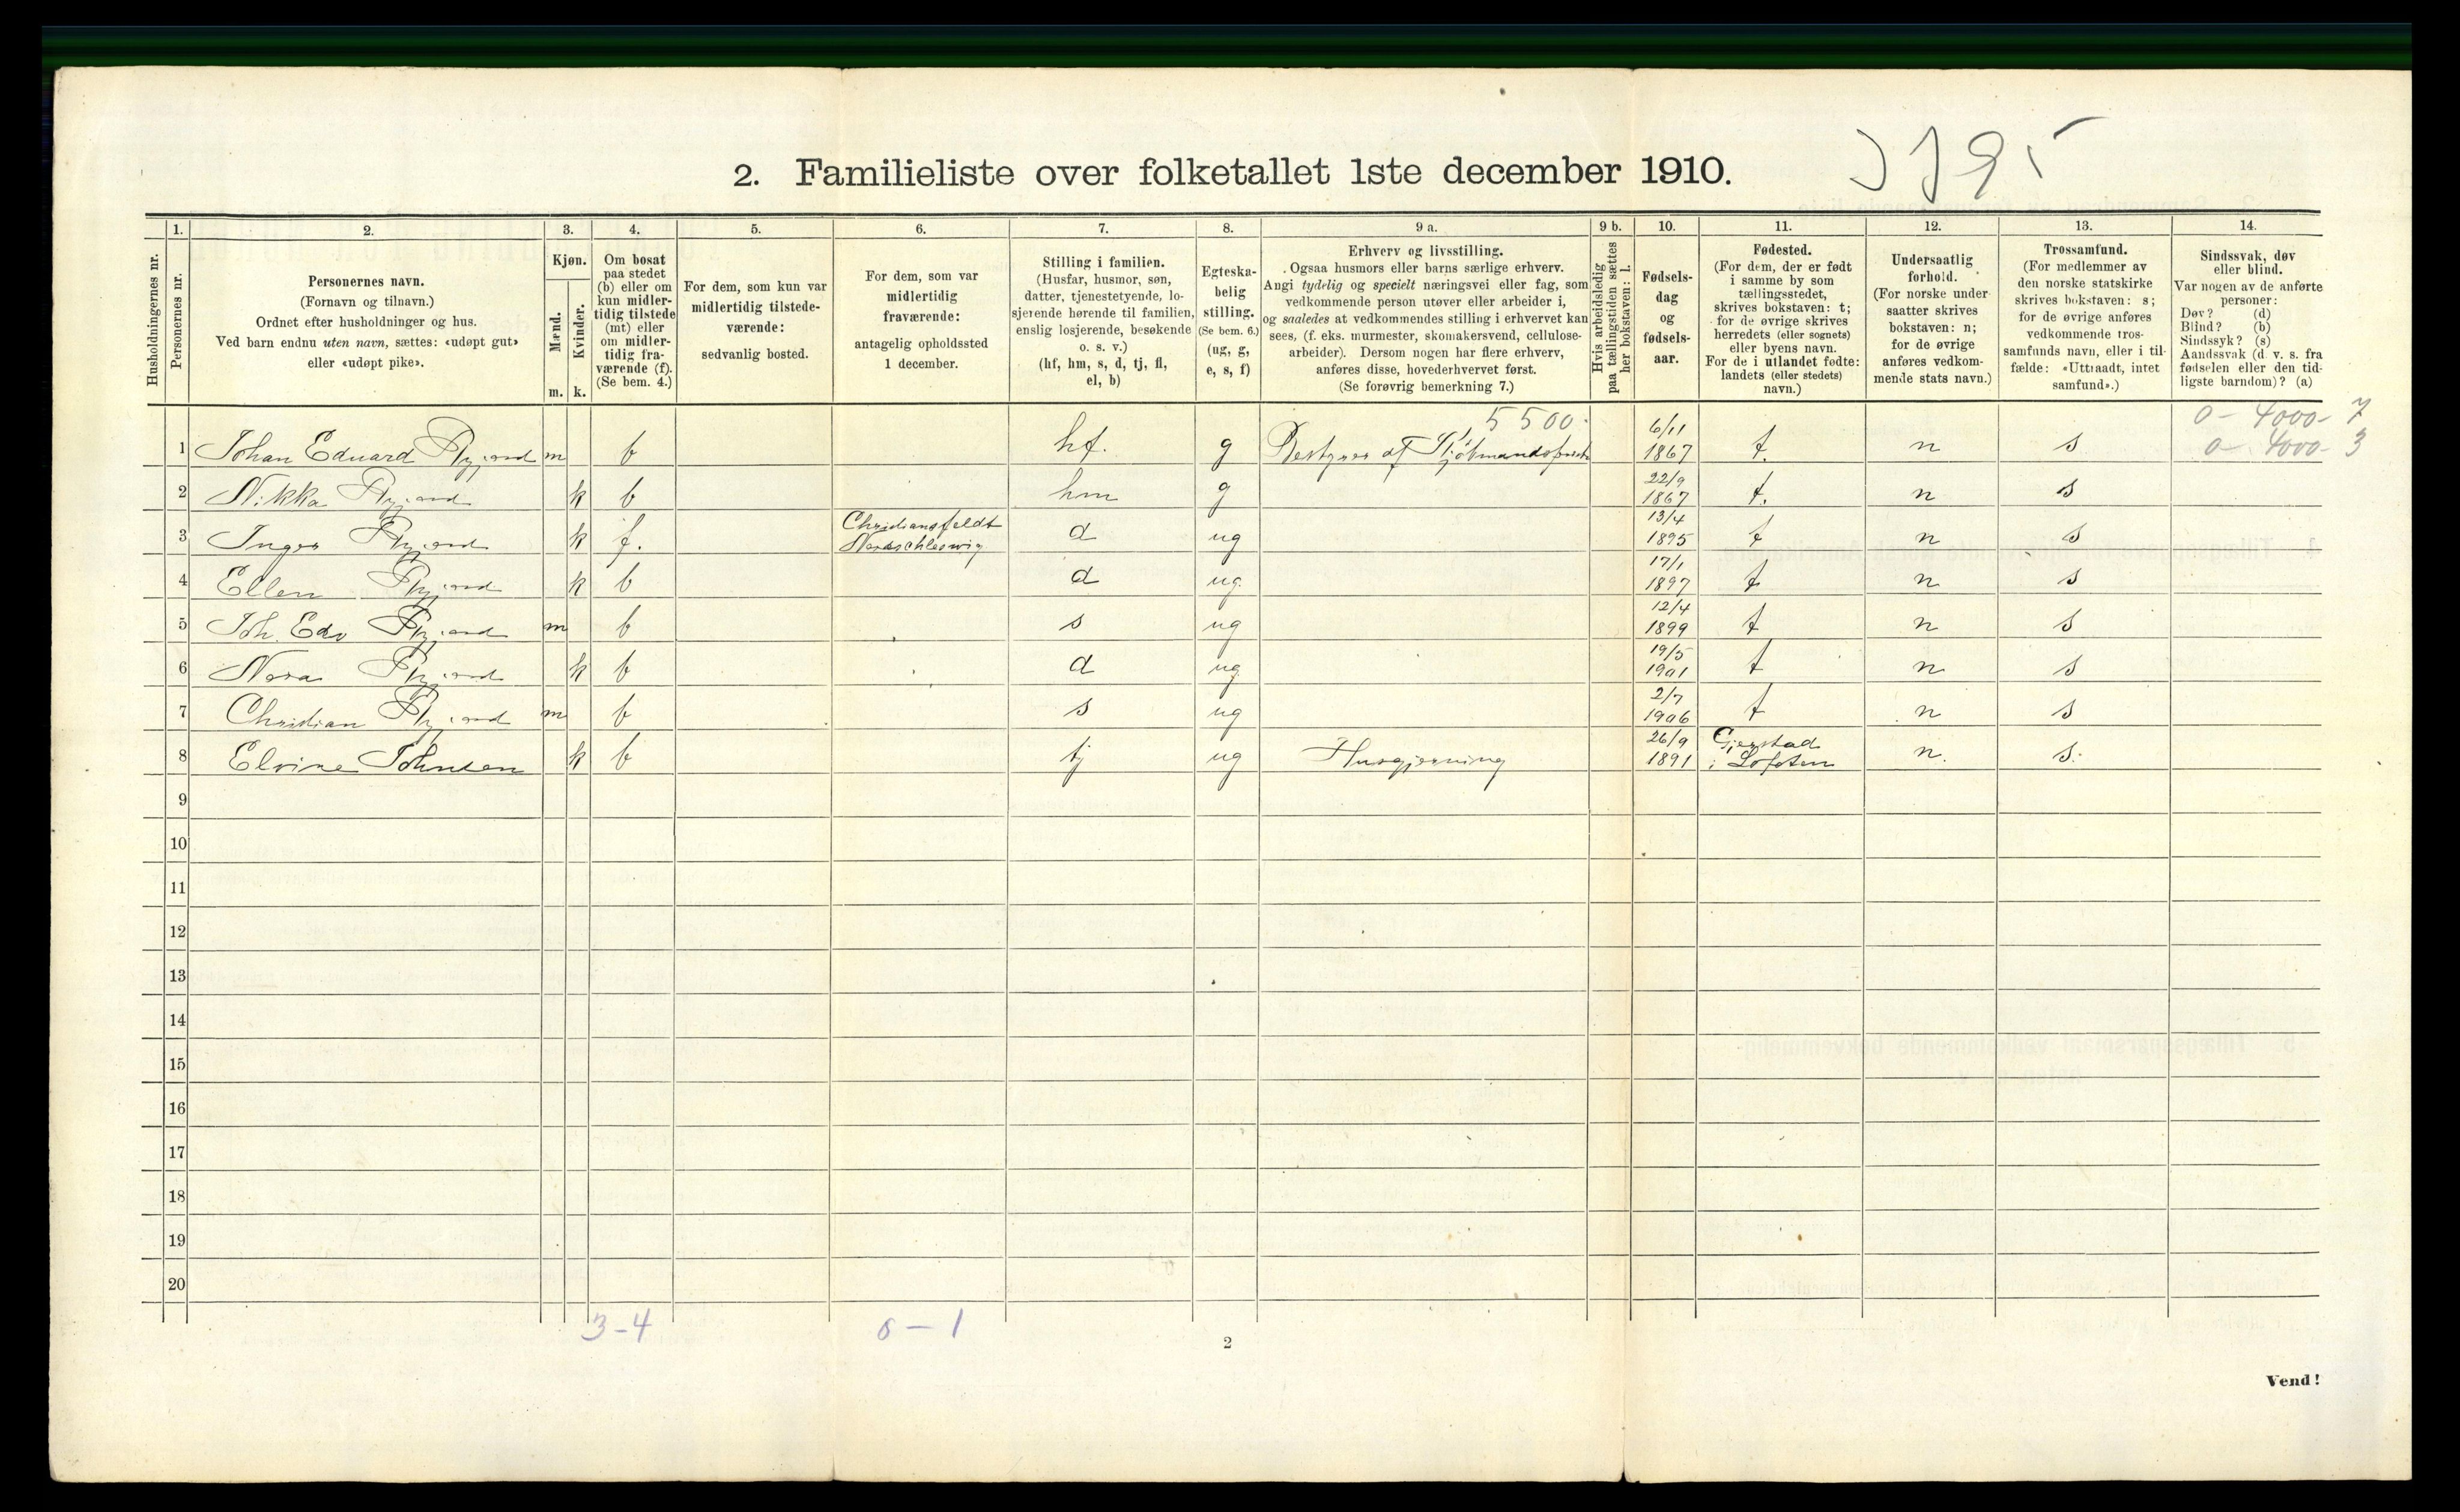 2. Familieliste over folketallet 1ste december 1910.
1. 2. 3. 4. 5. 6. 7. 8. 9 a. 9 b. 10. 11. 12. 13. 14.
Husholdningernes nr.
Personernes nr.
Personernes navn.
(Fornavn og tilnavn.)
Ordnet efter husholdninger og hus.
Ved barn endnu uten navn, sættes: «udøpt gut»
eller «udøpt pike».
Kjøn.
Mænd.
Kvinder.
m. k.
Om bosat
paa stedet
(b) eller om
kun midler-
tidig tilstede
(mt) eller
om midler-
tidig fra-
værende (f).
(Se bem. 4.)
For dem, som kun var
midlertidig tilstede-
værende:
sedvanlig bosted.
For dem, som var
midlertidig
fraværende:
antagelig opholdssted
1 december.
Stilling i familien.
(Husfar, husmor, søn,
datter, tjenestetyende, lo-
sjerende hørende til familien,
enslig losjerende, besøkende
o. s. v.)
(hf, hm, s, d, tj, fl,
el, b)
Egteska-
belig
stilling.
(Se bem. 6.)
(ug, g,
e, s, f)
Erhverv og livsstilling.
Ogsaa husmors eller barns særlige erhverv.
Angi tydelig og specielt næringsvei eller fag, som
vedkommende person utøver eller arbeider i,
og saaledes at vedkommendes stilling i erhvervet kan
sees, (f. eks. murmester, skomakersvend, cellulose-
arbeider). Dersom nogen har flere erhverv,
anføres disse, hovederhvervet først.
(Se forøvrig bemerkning 7.)
Hvis arbeidsledig
paa tællingstiden sættes
her bokstaven: l.
Fødsels-
dag
og
fødsels-
aar.
Fødested.
(For dem, der er født
i samme by som
tællingsstedet,
skrives bokstaven: t;
for de øvrige skrives
herredets (eller sognets)
eller byens navn.
For de i utlandet fødte:
landets (eller stedets)
navn.)
Undersaatlig
forhold.
(For norske under-
saatter skrives
bokstaven: n;
for de øvrige
anføres vedkom-
mende stats navn.)
Trossamfund.
(For medlemmer av
den norske statskirke
skrives bokstaven: s;
for de øvrige anføres
vedkommende tros-
samfunds navn, eller i til-
fælde: «Uttraadt, intet
samfund».)
Sindssvak, døv
eller blind.
Var nogen av de anførte
personer:
Døv? (d)
Blind? (b)
Sindssyk? (s)
Aandssvak (d. v. s. fra
fødselen eller den tid-
ligste barndom)? (a)
5500. 0 - 4000 - 7
0 - 4000 - 3
1 Johan Eduard m b hf. g Bestyrer af 6/11 1867 t. n s
2 Nikka k b hm g 22/9 1867 t. n s
3 Inger k f. Christiansfeldt Nordschleswig d ug 13/4 1895 t n s
4 Ellen k b d ug 17/1 1897 t n s
5 Joh. Edv m b s ug 12/4 1899 t n s
6 Nora k b d ug 19/5 1901 t n s
7 Christian m b s ug 2/7 1906 t n s
8 Elvine Johnsen k b tj ug Husgjerning 26/9 1891 i Lofoten n. s.
9
10
11
12
13
14
15
16
17
18
19
20
3-4 0-1
2
Vend!